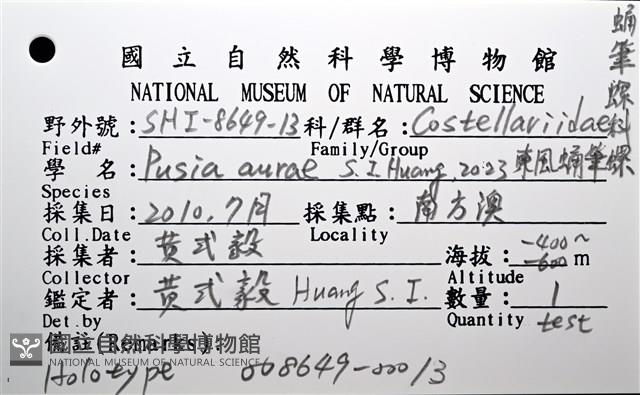 國立自然科學博物館
NATIONAL MUSEUM OF NATURAL SCIENCE
蛹筆螺科
野外號：SHI-8649-13 科/群名：Costellariidae
Field# Family/Group
學 名：Pusia aurae S.I.Huang, 2023 東風蛹筆螺
Species
採集日：2010, 7月 採集點：南方澳
Coll.Date Locality
採集者：黄式毅 海拔：-400~-600 m
Collector Altitude
鑑定者：黄式毅 Huang S. I. 數量：1
Det.by Quantity test
備註(Remarks)：
國立自然科學博物館
NATIONAL MUSEUM OF NATURAL SCIENCE
Holotype 008649-00013